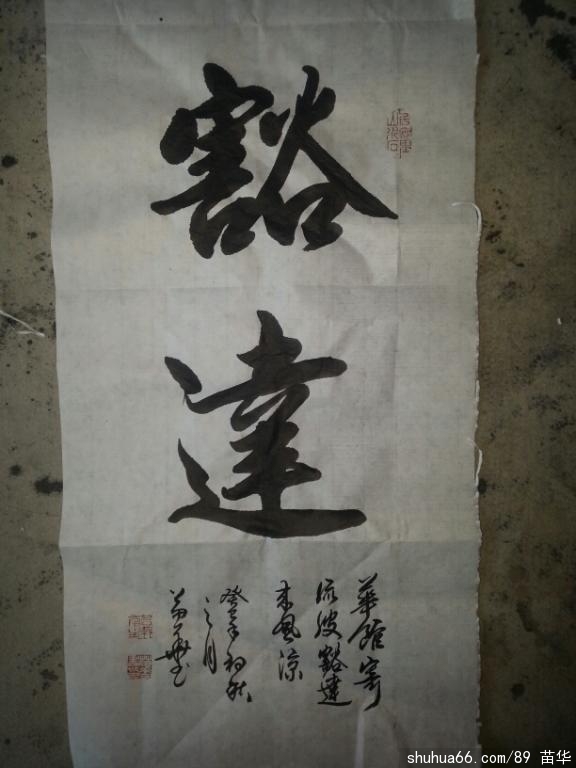 豁達
華館寄
流波豁達
来風涼
癸未初秋
之月
苗華書
shuhua66.com/89 苗华